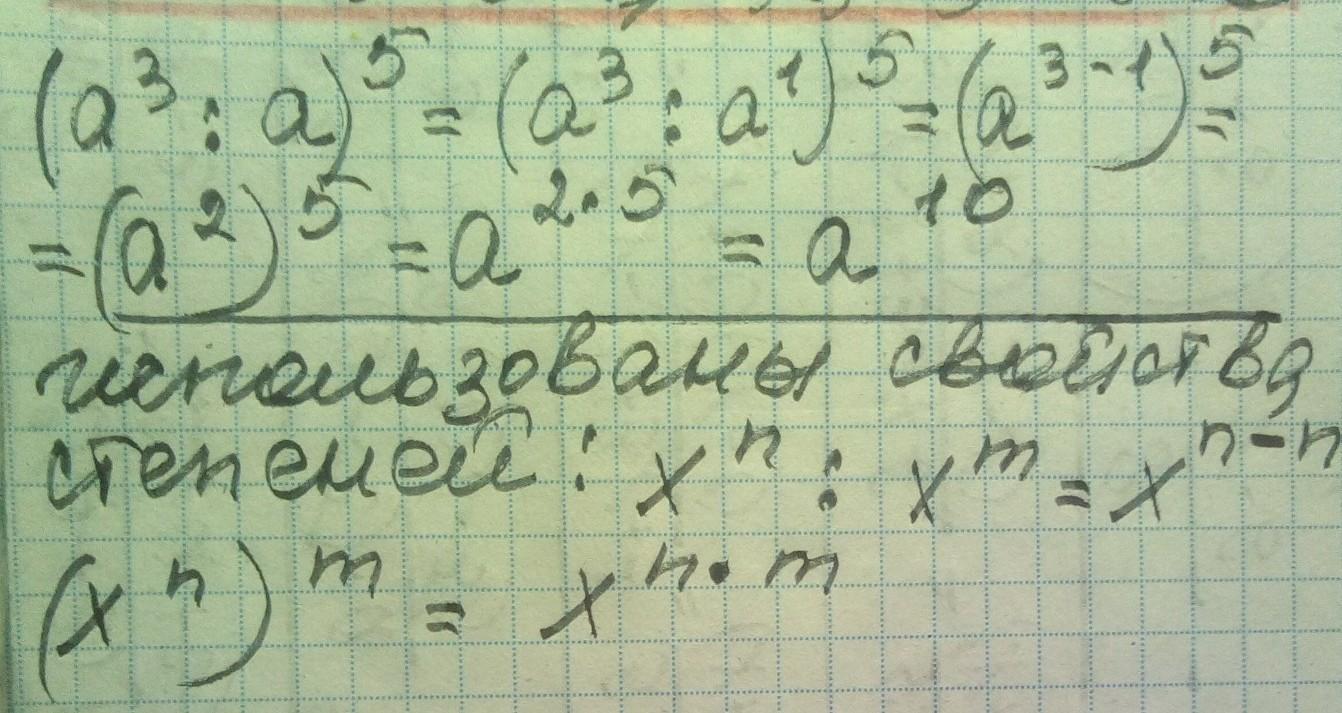 (a³ : a)⁵ = (a³ : a¹)⁵ = (a³⁻¹)⁵ =
= (a²)⁵ = a²·⁵ = a¹⁰
использованы свойства
степеней: xⁿ : xᵐ = xⁿ⁻ⁿ
(xⁿ)ᵐ = xⁿ·ᵐ